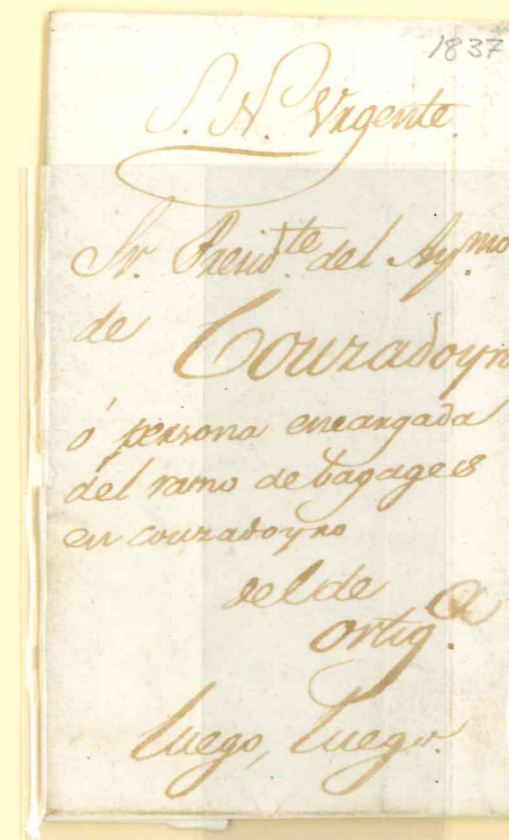 1837
S. N. Urgente.
Sr. Presid.te del Ay.mo
de Couzadoyro
ó persona encargada
del ramo de bagages
en couzadoyro
del de
Ortig.a
Luego, Luego.